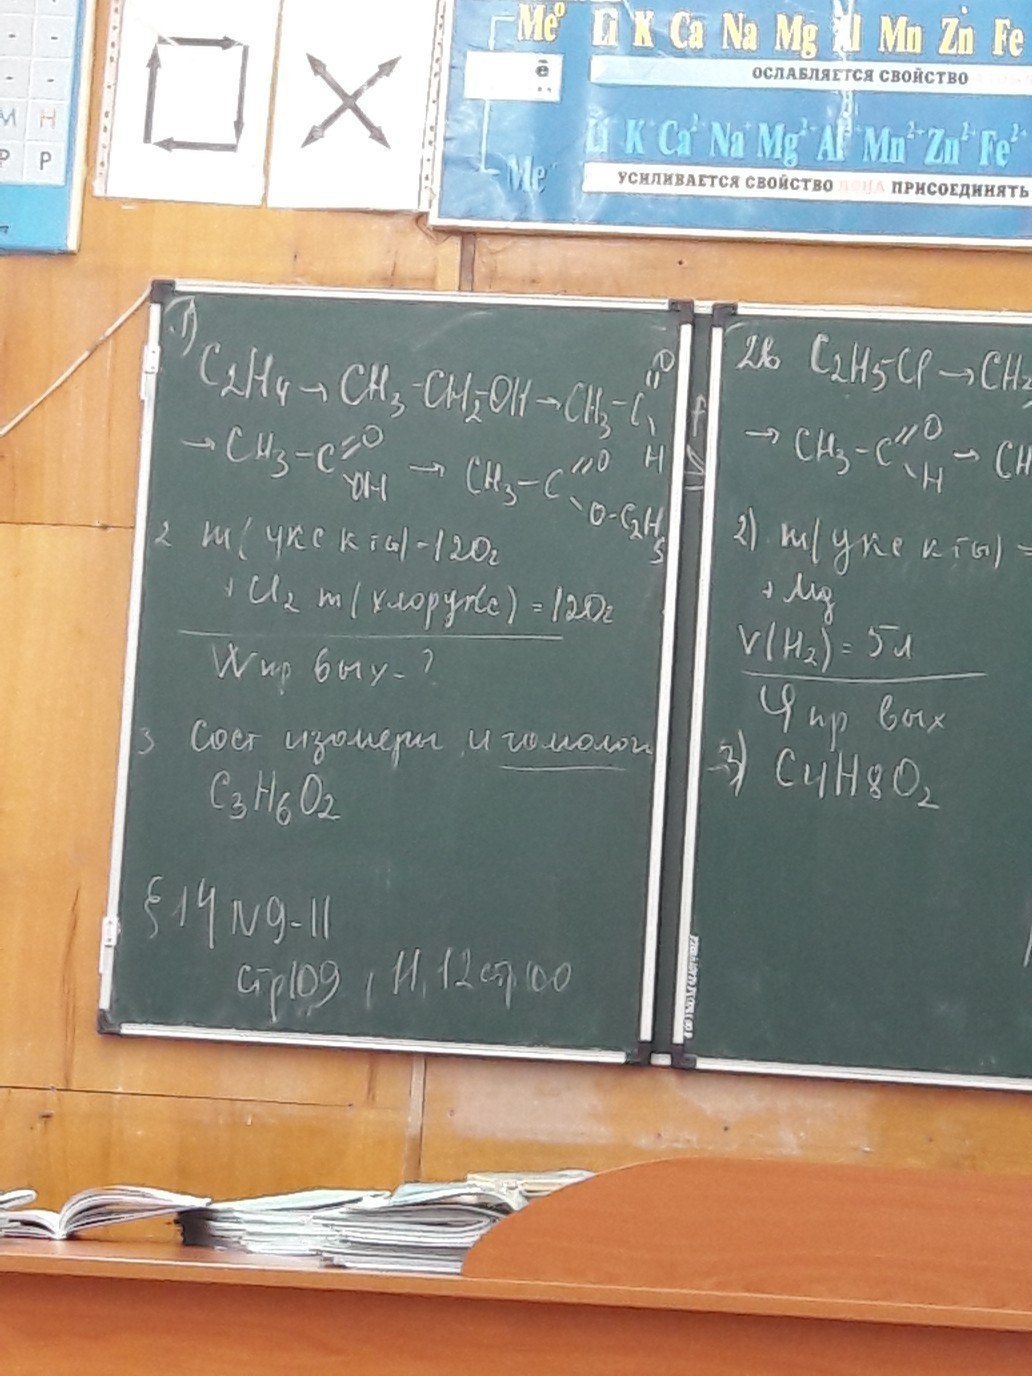 Me⁰ Li K Ca Na Mg Al Mn Zn Fe
ē
ОСЛАБЛЯЕТСЯ СВОЙСТВО
Li⁺ K⁺ Ca²⁺ Na⁺ Mg²⁺ Al³⁺ Mn²⁺ Zn²⁺ Fe²⁺
Me⁺
УСИЛИВАЕТСЯ СВОЙСТВО ИОНА ПРИСОЕДИНЯТЬ
М Н
Р Р
1)
C₂H₄ → CH₃-CH₂-OH → CH₃-C=O
H
→ CH₃-C=O → CH₃-C=O
OH O-C₂H₅
2 m(укс к ты) = 120г
+ Cl₂ m(хлоруксс) = 120г
W пр вых - ?
3 Сост изомеры и гомологи
C₃H₆O₂
§ 14 N 9-11
стр 109, Н, 12 стр 100
2в C₂H₅Cl → CH₃
→ CH₃-C=O → CH
H
2) m(укс к ты) =
+ Mg
V(H₂) = 5л
φ пр вых
3) C₄H₈O₂